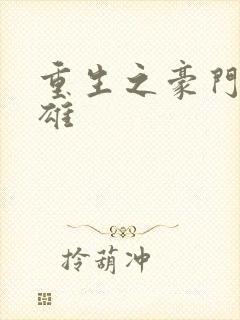 重生之豪門
雄
拎葫冲